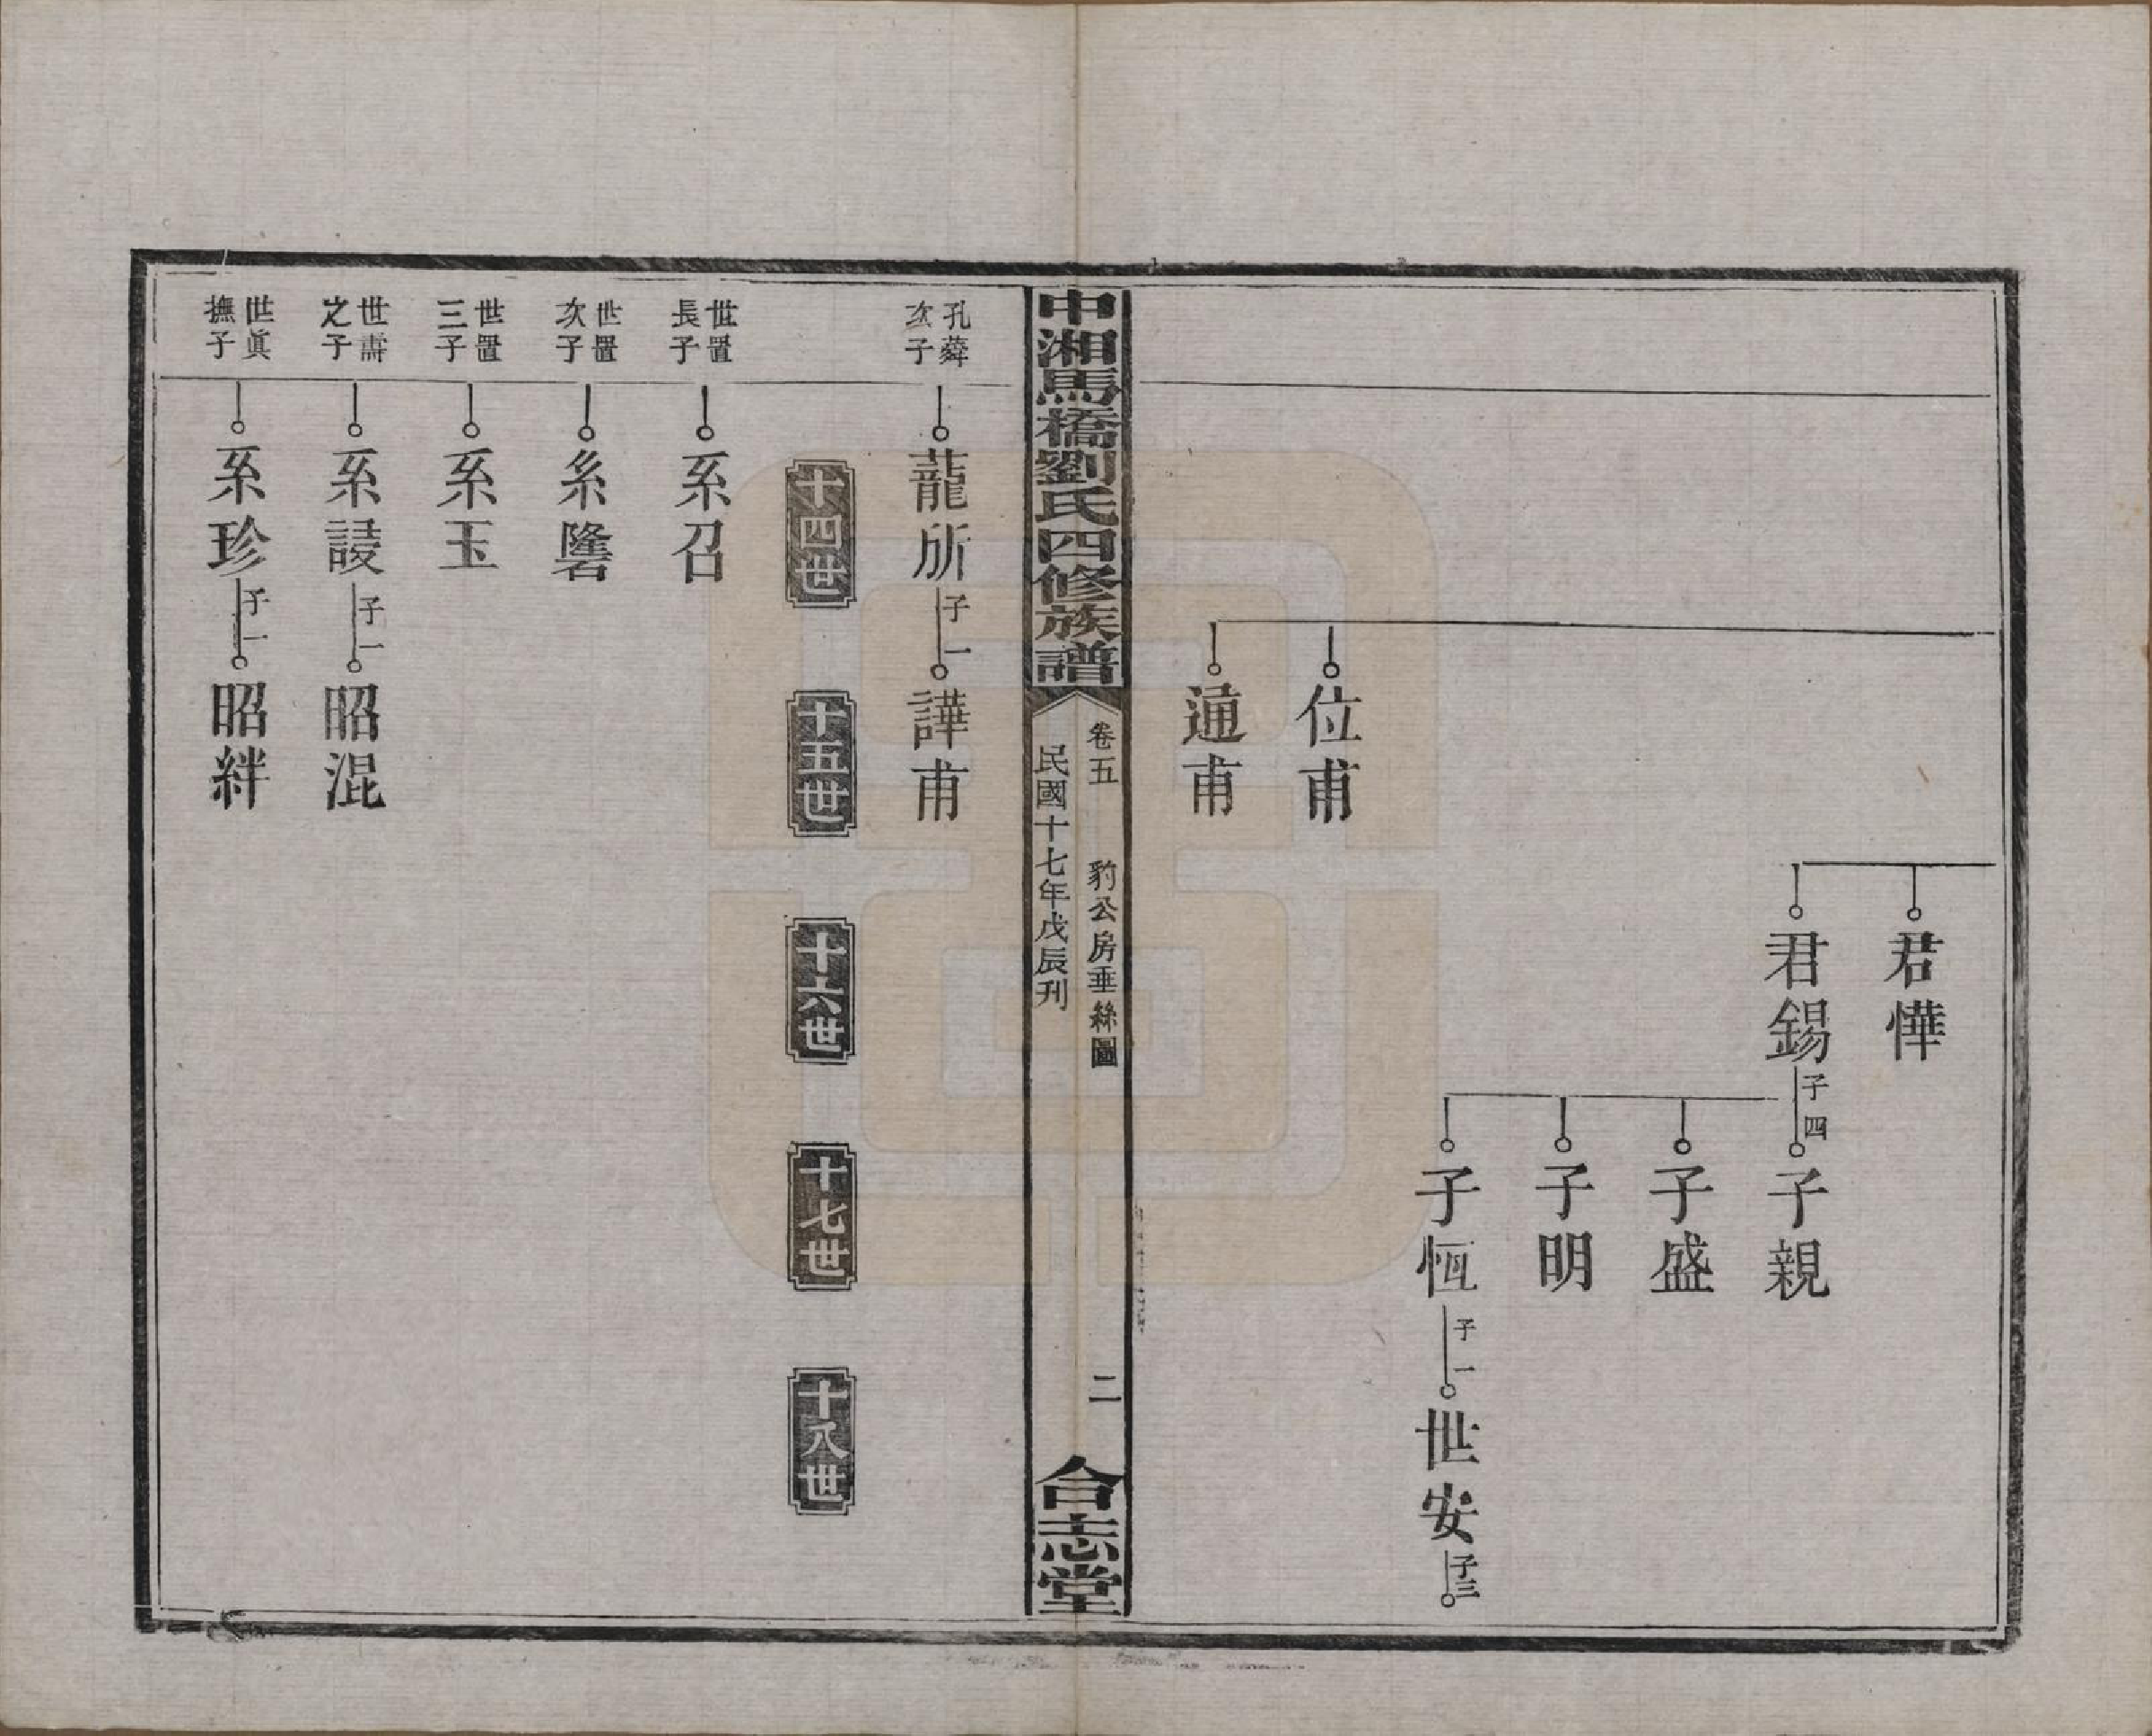 君愅
君錫 子四 子親
子盛
子明
子恆 子一 世安 子三
位甫
通甫
中湘馬橋劉氏四修族譜
卷五 豹公房垂絲圖 二
民國十七年戊辰刊
合志堂
孔薢次子 蘢所 子一 譁甫
十四世 十五世 十六世 十七世 十八世
世置長子 系召
世置次子 系
世置三子 系玉
世壽之子 系 子一 昭混
世眞撫子 系珍 子一 昭絆